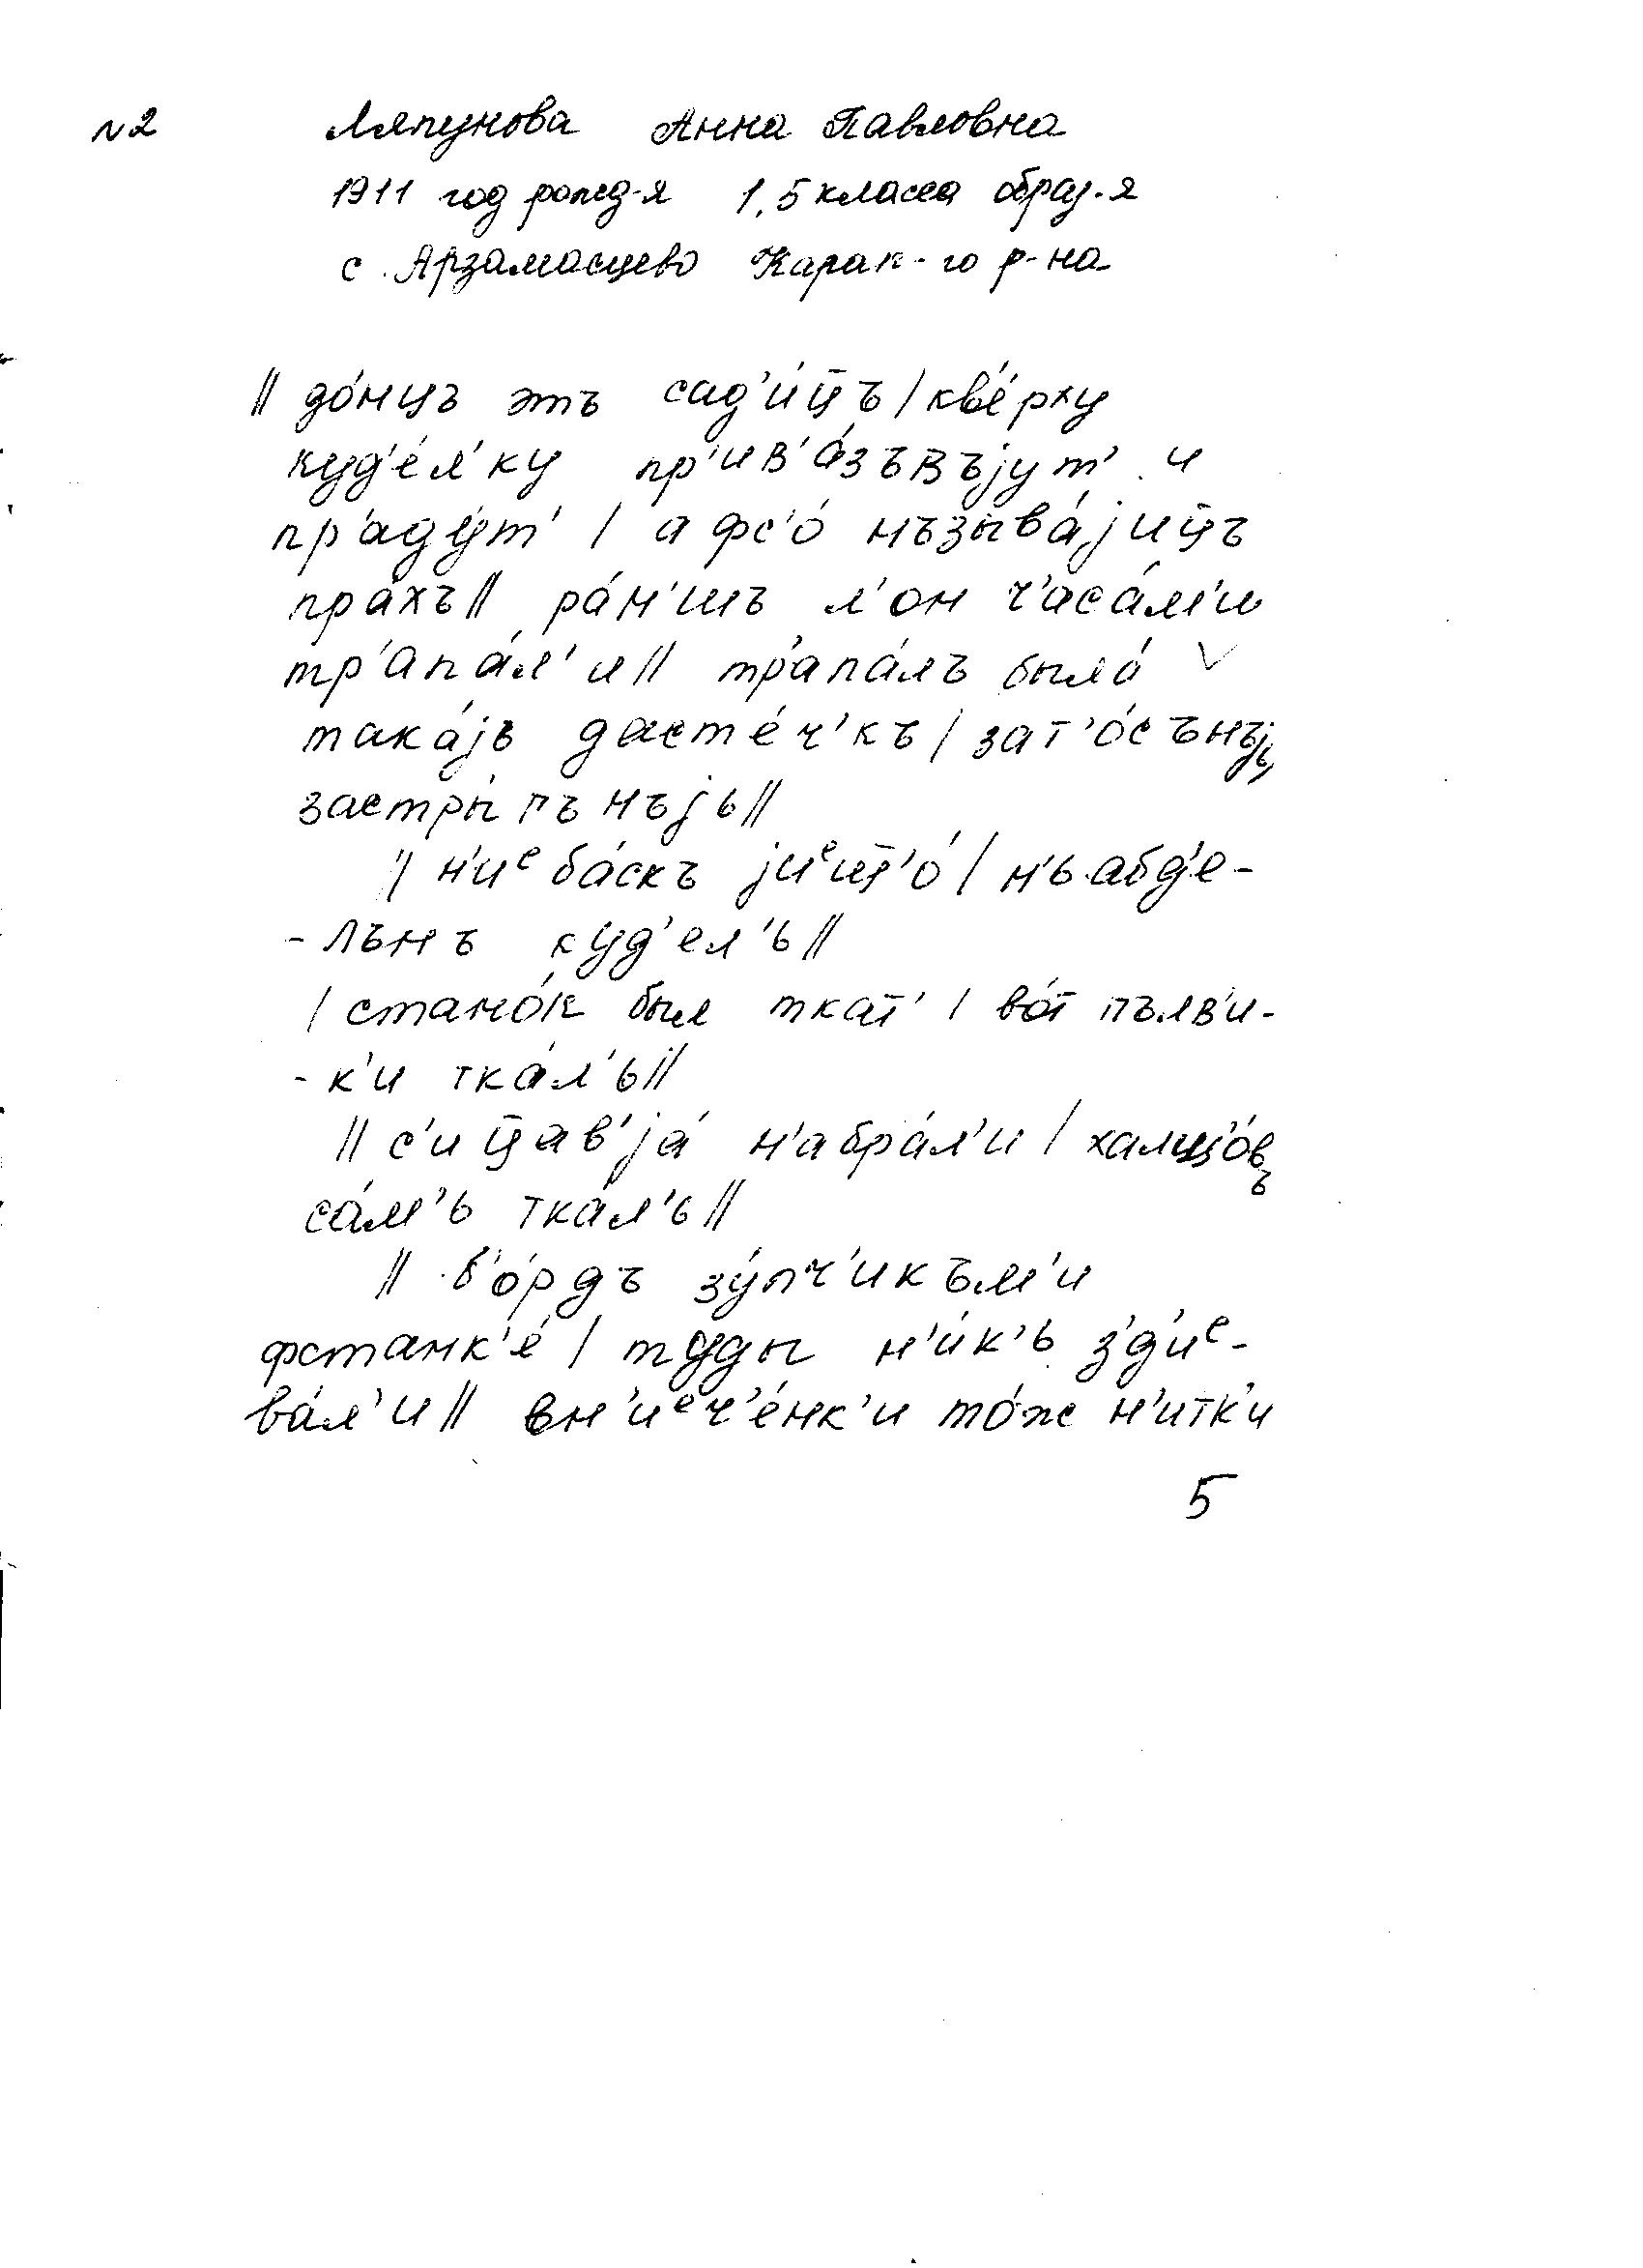 №2 Ляпунова Анна Павловна
1911 год рожд-я 1,5 класса образ-я
с. Арзамасцево Карак-го р-на
|| до́нцъ этъ сад'и́ц̅ъ | кв'е́рху
куд'е́л'ку пр'ив'а́зъвъjут' и
пр'аду́т' | а фс'о́ нъзыва́jиц̅ъ
пра́хъ || ра́н'шъ л'он ч'аса́м'и
тр'апа́л'и || тр'апа́лъ была́
така́jъ дасте́ч'къ | зат'о́сънъjь
застры́гънъjь ||
|| н'иᵉ ба́скъ jиᵉщ̅'о́ | н'ь абд'е-
-лънъ куд'ел'ь ||
| стано́к был ткат' | во́т пълв'и-
-к'и тка́л'ь ||
|| с'иц̅ав'jа́ н'абра́л'и | халщ'о́въ
са́м'ь тка́л'ь ||
|| б'о́рдъ зу́пч'икъм'и
фстанк'е́ | туды н'и́к'ь з'д'иᵉ-
ва́л'и || вн'иᵉч'е́нк'и то́же н'итк'и
5